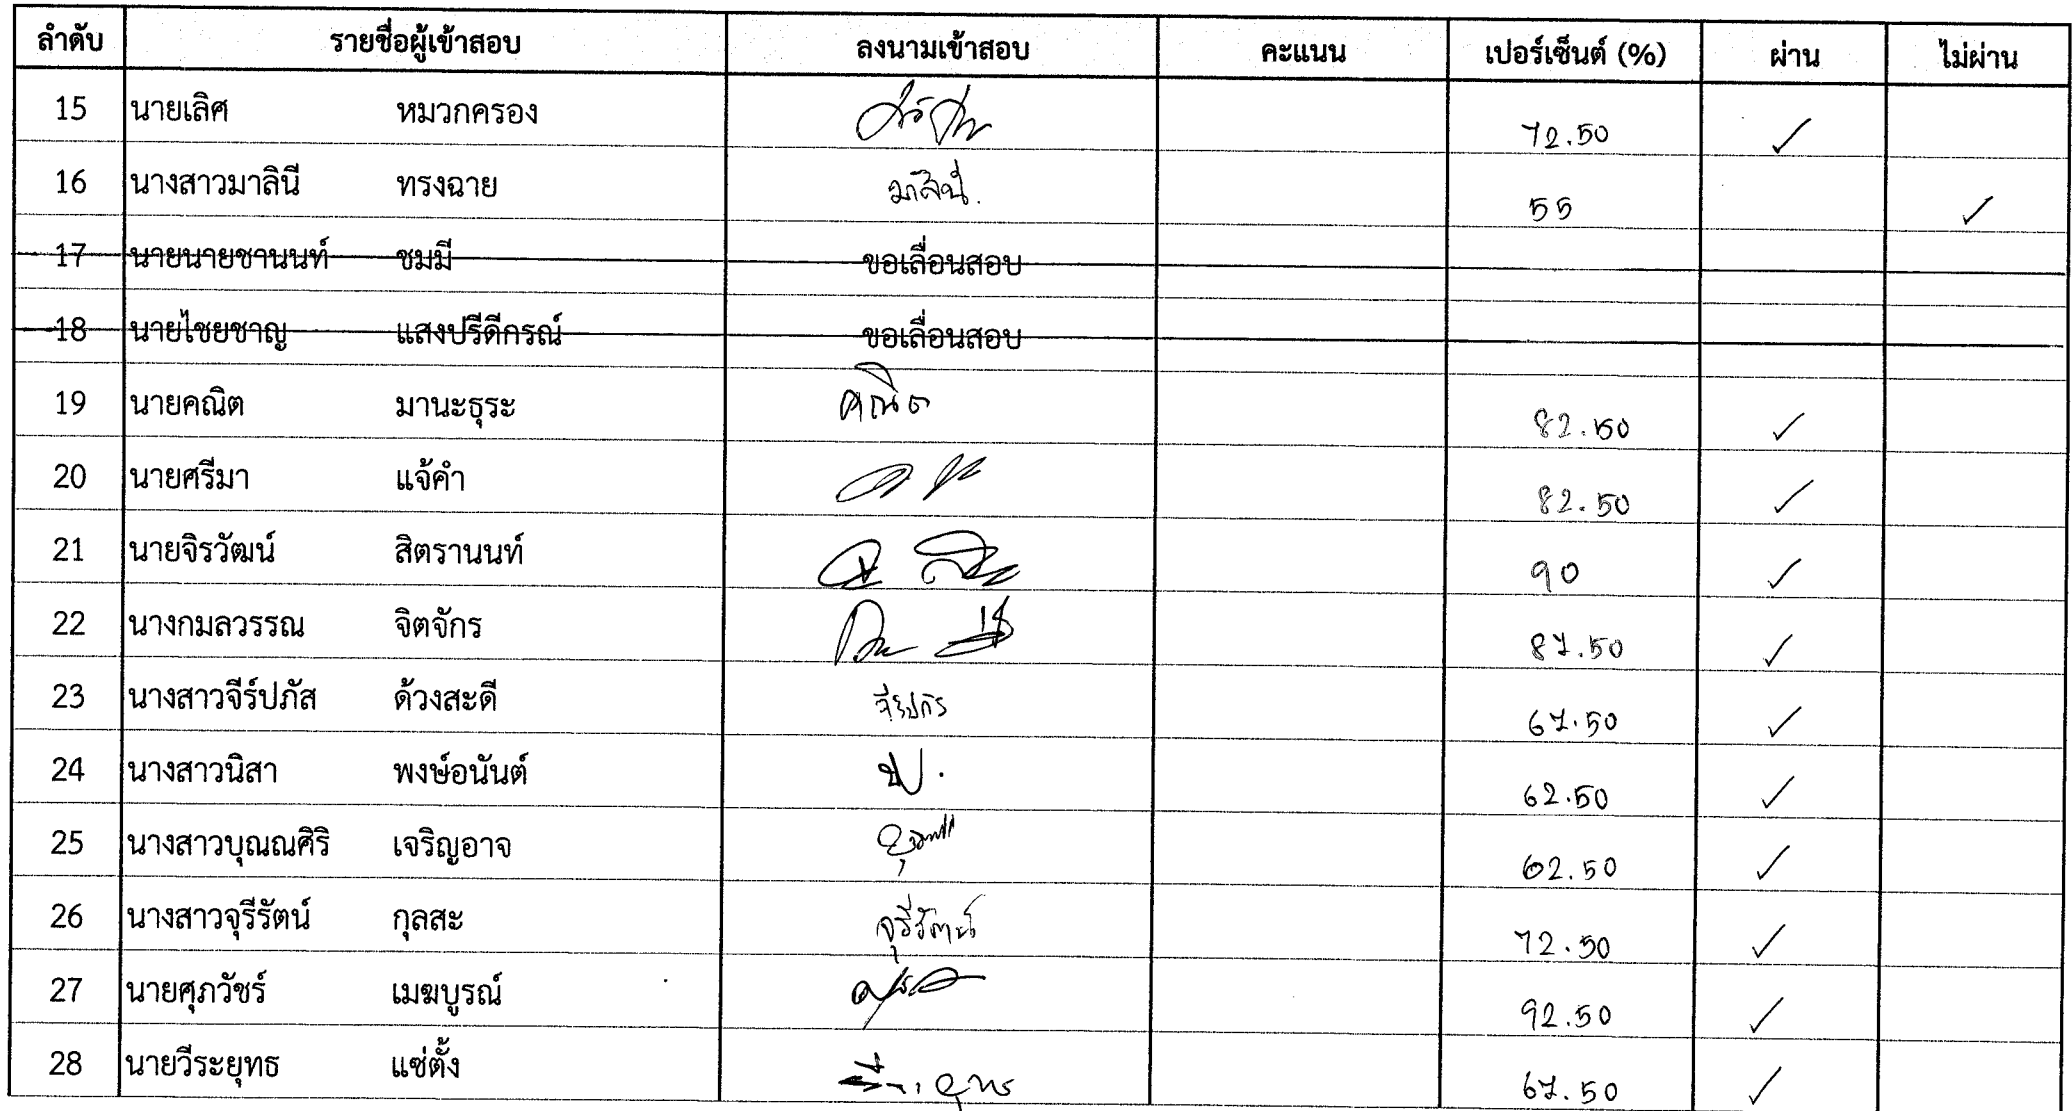 ลำดับ รายชื่อผู้เข้าสอบ ลงนามเข้าสอบ คะแนน เปอร์เซ็นต์ (%) ผ่าน ไม่ผ่าน
15 นายเลิศ หมวกครอง 72.50 ✓
16 นางสาวมาลินี ทรงฉาย มาลินี. 55 ✓
17 นายนายชานนท์ ชมมี ขอเลื่อนสอบ
18 นายไชยชาญ แสงปรีดีกรณ์ ขอเลื่อนสอบ
19 นายคณิต มานะธุระ คณิต 82.50 ✓
20 นายศรีมา แจ้คำ 82.50 ✓
21 นายจิรวัฒน์ สิตรานนท์ 90 ✓
22 นางกมลวรรณ จิตจักร 87.50 ✓
23 นางสาวจีร์ปภัส ด้วงสะดี 67.50 ✓
24 นางสาวนิสา พงษ์อนันต์ 62.50 ✓
25 นางสาวบุณณศิริ เจริญอาจ 62.50 ✓
26 นางสาวจุรีรัตน์ กุลสะ จุรีรัตน์ 72.50 ✓
27 นายศุภวัชร์ เมฆบูรณ์ 92.50 ✓
28 นายวีระยุทธ แซ่ตั้ง 67.50 ✓